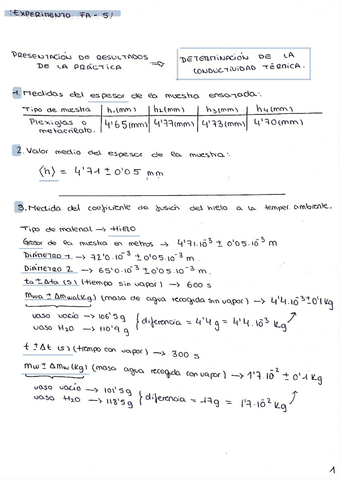 ¡EXPERIMENTO FA-5!
PRESENTACIÓN DE RESULTADOS DE LA PRÁCTICA ⟹ DETERMINACIÓN DE LA CONDUCTIVIDAD TÉRMICA.
1. Medidas del espesor de la muestra ensayada:
Tipo de muestra | h₁(mm) | h₂(mm) | h₃(mm) | h₄(mm)
Plexiglás o metacrilato. | 4'65(mm) | 4'77(mm) | 4'73(mm) | 4'70(mm)
2. Valor medio del espesor de la muestra:
⟨h⟩ = 4'71 ± 0'05 mm
3. Medida del coeficiente de fusión del hielo a la temper. ambiente.
Tipo de material → HIELO
Grosor de la muestra en metros → 4'71·10⁻³ ± 0'05·10⁻³ m
DIÁMETRO 1 → 72'0·10⁻³ ± 0'05·10⁻³ m.
DIÁMETRO 2 → 65'0·10⁻³ ± 0'05·10⁻³ m.
ta ± Δta (s) (tiempo sin vapor) → 600 s
mwa ± Δmwa(kg) (masa de agua recogida sin vapor) → 4'4·10⁻³ ± 0'1 kg
vaso vacío → 106'5g
vaso H₂O → 110'9 g } diferencia = 4'4 g = 4'4·10⁻³ kg
t ± Δt (s) (tiempo con vapor) → 300 s
mw ± Δmw (kg) (masa agua recogida con vapor) → 1'7·10⁻² ± 0'1 kg
vaso vacío → 101'5g
vaso H₂O → 118'5g } diferencia = 17g = 1'7·10⁻² kg
1